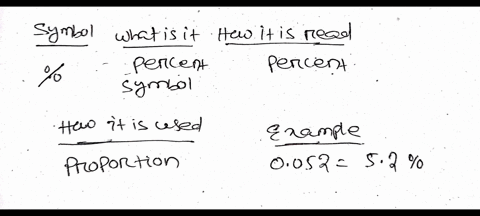 Symbol What is it How it is read
% Percent Symbol Percent
How it is used Example
Proportion 0.052 = 5.2 %